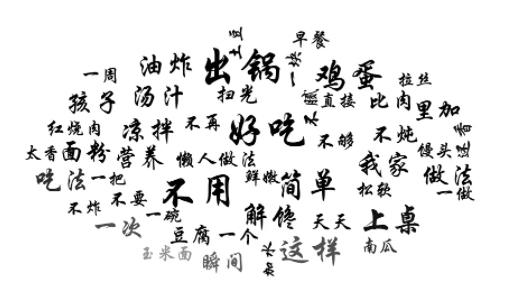 早餐
出锅
油炸
一周
鸡蛋
拉丝
孩子
汤汁
扫光
直接
比肉
里加
红烧肉
凉拌
不再
好吃
不够
不炖
太香
面粉
营养
懒人做法
我家
馒头
做法
吃法
一把
不用
鲜嫩
简单
松软
一做
不炸
不要
一碗
解馋
天天
上桌
一次
豆腐
一个
这样
南瓜
玉米面
瞬间